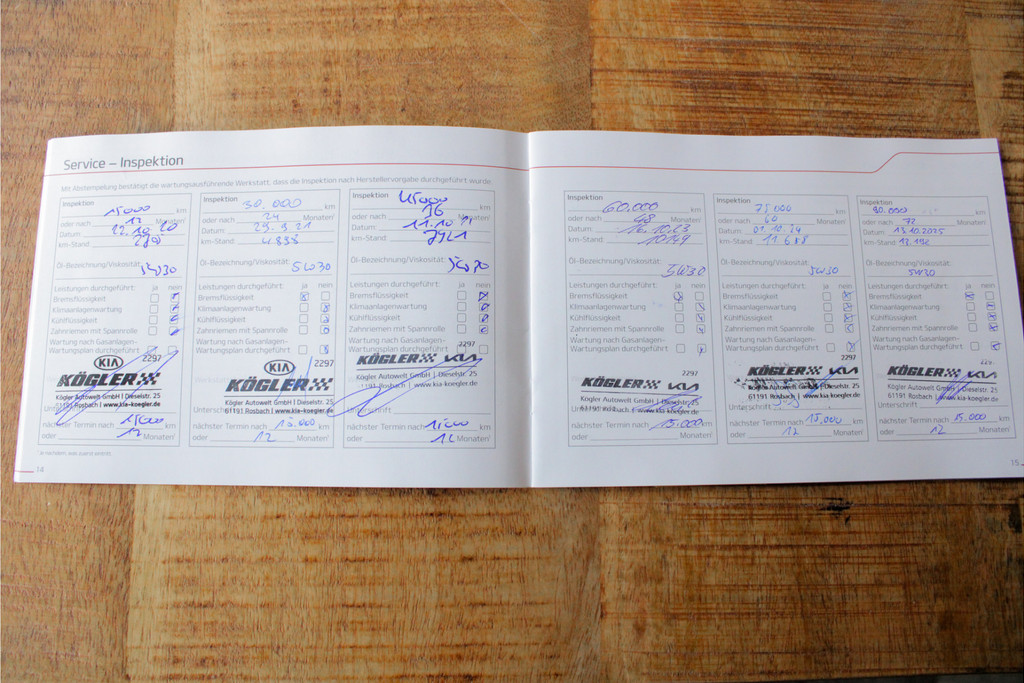 Service – Inspektion
Mit Abstempelung bestätigt die wartungsausführende Werkstatt, dass die Inspektion nach Herstellervorgabe durchgeführt wurde.
Inspektion
15000 km
oder nach 12 Monaten¹
Datum: 22.10.20
km-Stand:
Öl-Bezeichnung/Viskosität:
5W30
Leistungen durchgeführt: ja nein
Bremsflüssigkeit
Klimaanlagenwartung
Kühlflüssigkeit
Zahnriemen mit Spannrolle
Wartung nach Gasanlagen-
Wartungsplan durchgeführt
2297
KIA
KÖGLER
Kögler Autowelt GmbH | Dieselstr. 25
61191 Rosbach | www.kia-koegler.de
nächster Termin nach 15000 km
oder 12 Monaten¹
Inspektion
30.000 km
oder nach 24 Monaten¹
Datum: 29.9.21
km-Stand: 4.838
Öl-Bezeichnung/Viskosität:
5W30
Leistungen durchgeführt: ja nein
Bremsflüssigkeit
Klimaanlagenwartung
Kühlflüssigkeit
Zahnriemen mit Spannrolle
Wartung nach Gasanlagen-
Wartungsplan durchgeführt
2297
KIA
KÖGLER
Kögler Autowelt GmbH | Dieselstr. 25
Unterschrift
61191 Rosbach | www.kia-koegler.de
nächster Termin nach 15.000 km
oder 12 Monaten¹
Inspektion 45000 km
oder nach 36 Monaten¹
Datum:
km-Stand:
Öl-Bezeichnung/Viskosität:
5W30
Leistungen durchgeführt: ja nein
Bremsflüssigkeit
Klimaanlagenwartung
Kühlflüssigkeit
Zahnriemen mit Spannrolle
Wartung nach Gasanlagen-
Wartungsplan durchgeführt
2297
KÖGLER KIA
Kögler Autowelt GmbH | Dieselstr. 25
61191 Rosbach | www.kia-koegler.de
Unterschrift
nächster Termin nach 15000 km
oder 12 Monaten¹
14
Inspektion
60.000 km
oder nach 48 Monaten¹
Datum: 16.10.23
km-Stand: 10149
Öl-Bezeichnung/Viskosität:
5W30
Leistungen durchgeführt: ja nein
Bremsflüssigkeit
Klimaanlagenwartung
Kühlflüssigkeit
Zahnriemen mit Spannrolle
Wartung nach Gasanlagen-
Wartungsplan durchgeführt
2297
KÖGLER KIA
Kögler Autowelt GmbH | Dieselstr. 25
61191 Rosbach | www.kia-koegler.de
nächster Termin nach 15.000 km
oder 12 Monaten¹
Inspektion
75.000 km
oder nach 60 Monaten¹
Datum: 01.10.24
km-Stand: 11.688
Öl-Bezeichnung/Viskosität:
5W30
Leistungen durchgeführt: ja nein
Bremsflüssigkeit
Klimaanlagenwartung
Kühlflüssigkeit
Zahnriemen mit Spannrolle
Wartung nach Gasanlagen-
Wartungsplan durchgeführt
2297
KÖGLER KIA
Kögler Autowelt GmbH | Dieselstr. 25
61191 Rosbach | www.kia-koegler.de
Unterschrift
nächster Termin nach 15.000 km
oder 12 Monaten¹
Inspektion
90.000 km
oder nach 72 Monaten¹
Datum: 13.10.2025
km-Stand:
Öl-Bezeichnung/Viskosität:
5W30
Leistungen durchgeführt: ja nein
Bremsflüssigkeit
Klimaanlagenwartung
Kühlflüssigkeit
Zahnriemen mit Spannrolle
Wartung nach Gasanlagen-
Wartungsplan durchgeführt
KÖGLER KIA
Kögler Autowelt GmbH | Dieselstr. 25
61191 Rosbach | www.kia-koegler.de
Unterschrift
nächster Termin nach 15.000 km
oder 12 Monaten¹
15